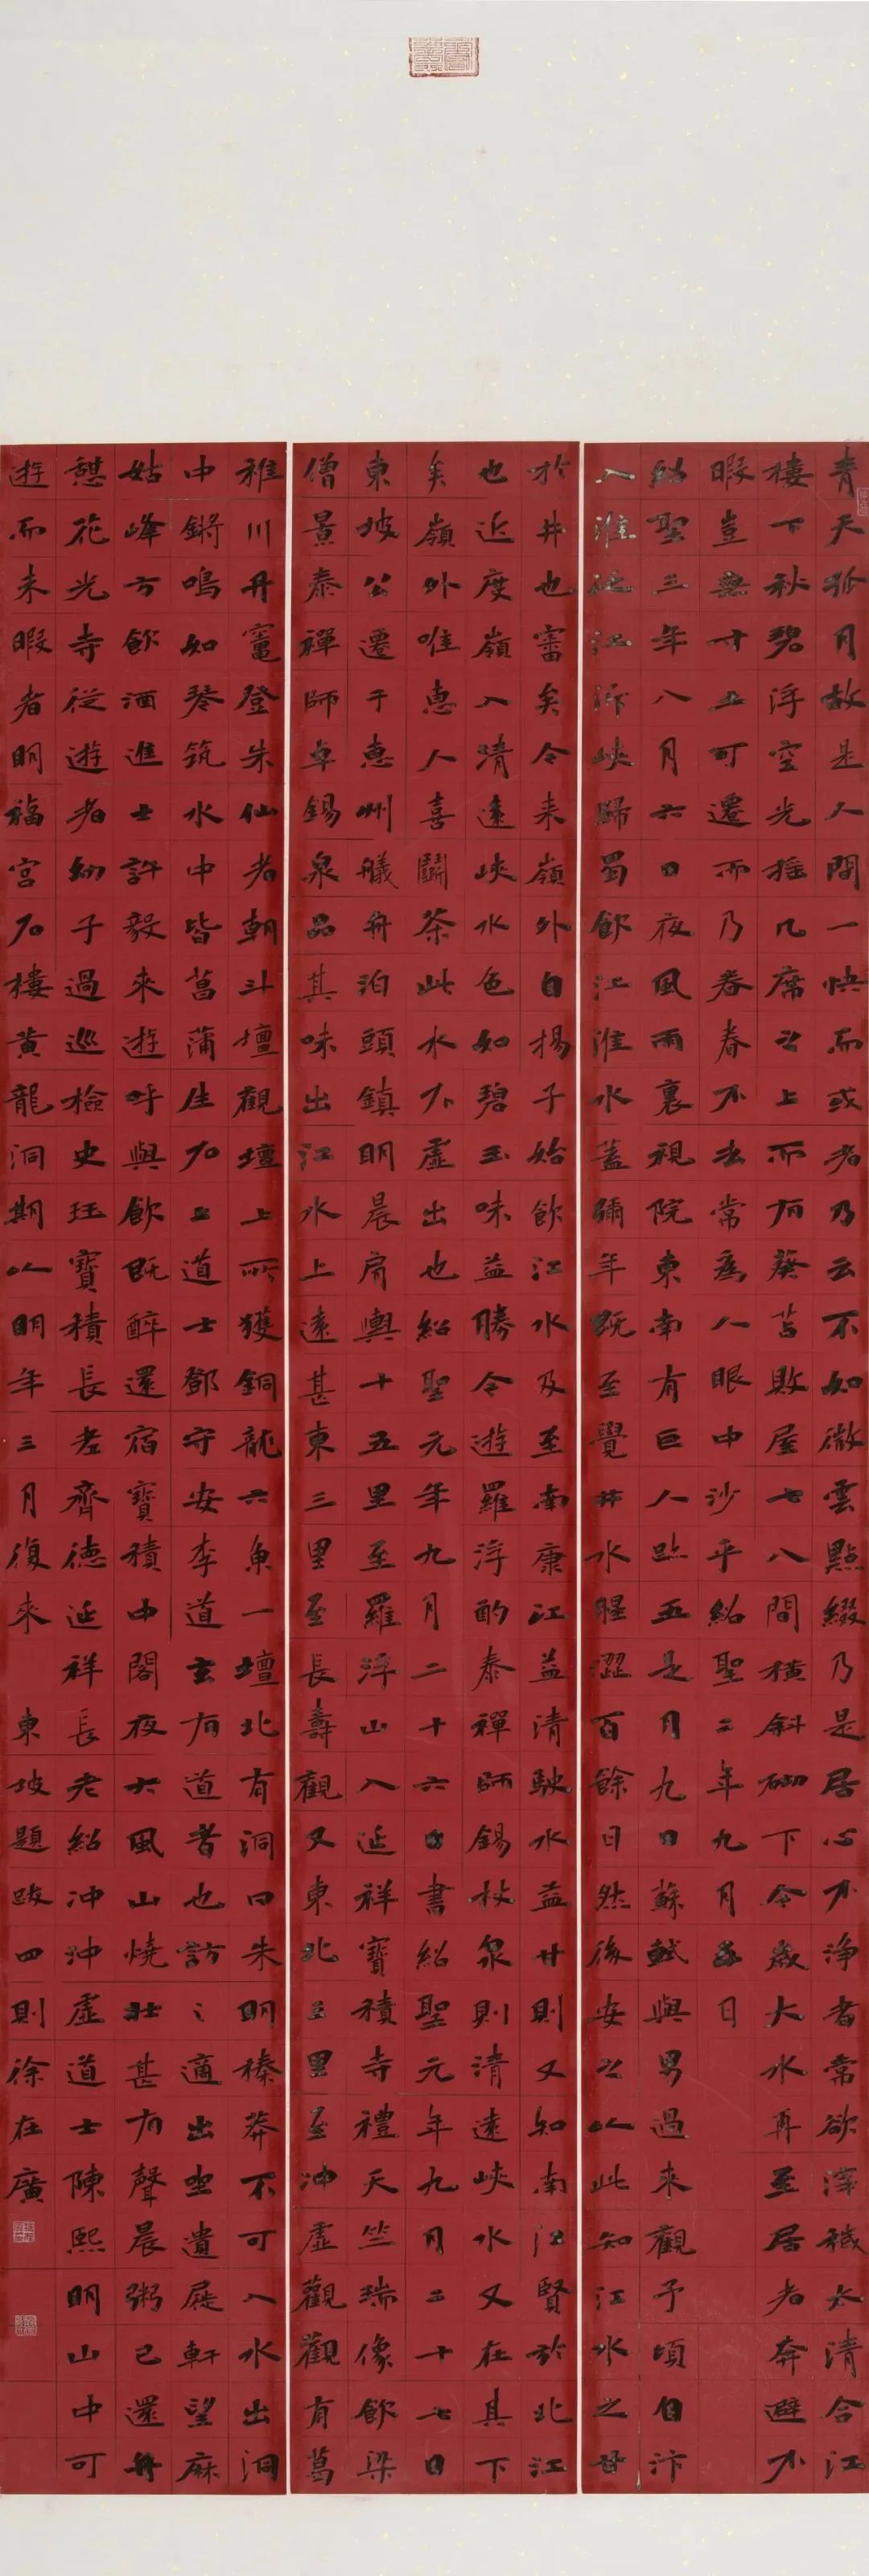 青天孤月故是人間一快而或者乃云不如微雲點綴乃是居心不淨者常欲滓穢太清合江
樓下秋碧浮空光搖几席之上而有葵苫敗屋七八間橫斜砌下今歲大水再至居者奔避不
暇豈無寸土可遷而乃眷眷不去常爲人眼中沙乎紹聖二年九月五日
紹聖三年八月六日夜風雨裏視院東南有巨人跡五是月九日蘇軾與男過來觀予頃自汴
入淮泛江泝峽歸蜀飲江淮水蓋彌年既至覺井水腥澀百餘日然後安之以此知江水之甘
於井也審矣今来嶺外自揚子始飲江水及至南康江益清駛水益甘則又知南江賢於北江
也近度嶺入清遠峽水色如碧玉味益勝今遊羅浮酌泰禪師錫杖泉則清遠峽水又在其下
矣嶺外唯惠人喜鬬茶此水不虛出也紹聖元年九月二十六日書紹聖元年九月二十七日
東坡公遷于惠州艤舟泊頭鎮明晨肩輿十五里至羅浮山入延祥寶積寺禮天竺瑞像飲梁
僧景泰禪師卓錫泉品其味出江水上遠甚東三里至長壽觀又東北三里至沖虛觀觀有葛
稚川丹竈登朱仙者朝斗壇觀壇上所獲銅龍六魚一壇北有洞曰朱明榛莽不可入水出洞
中鏘鳴如琴筑水中皆菖蒲生石上道士鄧守安李道玄有道者也訪之適出坐遺屣軒望麻
姑峰方飲酒進士許毅來遊呼與飲既醉還宿寶積中閣夜大風山燒壯甚有聲晨粥已還舟
憩花光寺從遊者幼子過巡檢史珏寶積長老齊德延祥長老紹沖沖虛道士陳熙明山中可
遊而未暇者明福宮石樓黃龍洞期以明年三月復來 東坡題跋四則徐在廣